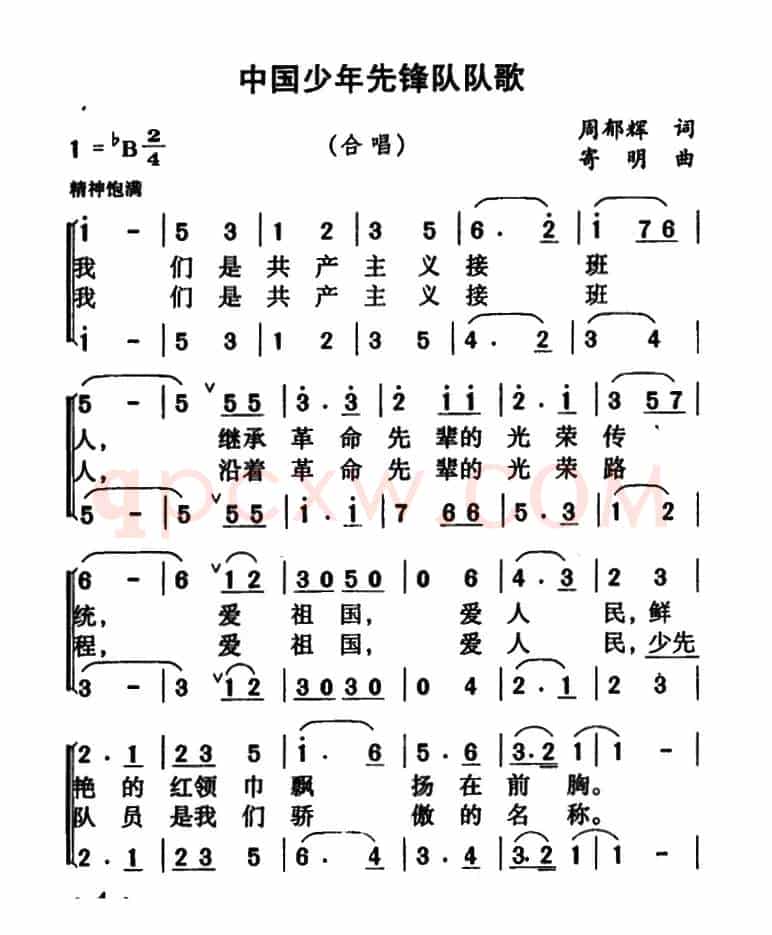 中国少年先锋队队歌
1 = ♭B 2/4
(合唱)
周郁辉 词
寄 明 曲
精神饱满
i̇ - | 5 3 | 1 2 | 3 5 | 6 . 2̇ | i̇ 7 6 |
我 们 是 共 产 主 义 接 班
我 们 是 共 产 主 义 接 班
i̇ - | 5 3 | 1 2 | 3 5 | 4 . 2 | 3 4 |
5 - | 5 ∨ 5 5 | 3̇ . 3̇ | 2̇ i̇ i̇ | 2̇ . i̇ | 3 5 7 |
人, 继承 革 命 先 辈的 光 荣 传
人, 沿着 革 命 先 辈的 光 荣 路
5 - | 5 5 5 | i̇ . i̇ | 7 6 6 | 5 . 3 | 1 2 |
6 - | 6 ∨ 1 2 | 3 0 5 0 | 0 6 | 4 . 3 | 2 3 |
统, 爱 祖 国, 爱 人 民, 鲜
程, 爱 祖 国, 爱 人 民, 少先
3 - | 3 ∨ 1 2 | 3 0 3 0 | 0 4 | 2 . 1 | 2 3 |
2 . 1 | 2 3 5 | i̇ . 6 | 5 . 6 | 3 . 2 1 | 1 - |
艳 的 红领 巾 飘 扬 在 前 胸。
队 员 是我 们 骄 傲 的 名 称。
2 . 1 | 2 3 5 | 6 . 4 | 3 . 4 | 3 . 2 1 | 1 - |
qpcxw.COM